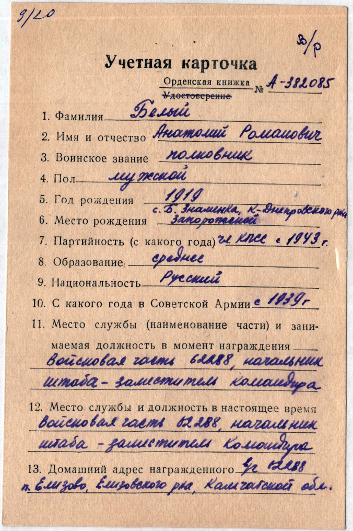 9/20
В/р
Учетная карточка
Орденская книжка
Удостоверение № А-382085
1. Фамилия Белый
2. Имя и отчество Анатолий Романович
3. Воинское звание полковник
4. Пол мужской
5. Год рождения 1919
с. Б. Знаменка, К-Днепровского р-на
6. Место рождения Запорожской
7. Партийность (с какого года) чл КПСС с 1943 г.
8. Образование среднее
9. Национальность Русский
10. С какого года в Советской Армии с 1939 г
11. Место службы (наименование части) и зани-
маемая должность в момент награждения
Войсковая часть 62288, начальник
штаба - заместитель командира
12. Место службы и должность в настоящее время
Войсковая часть 62288, начальник
штаба - заместитель командира
13. Домашний адрес награжденного 62288
п. Елизово, Елизовского р-на, Камчатской обл.